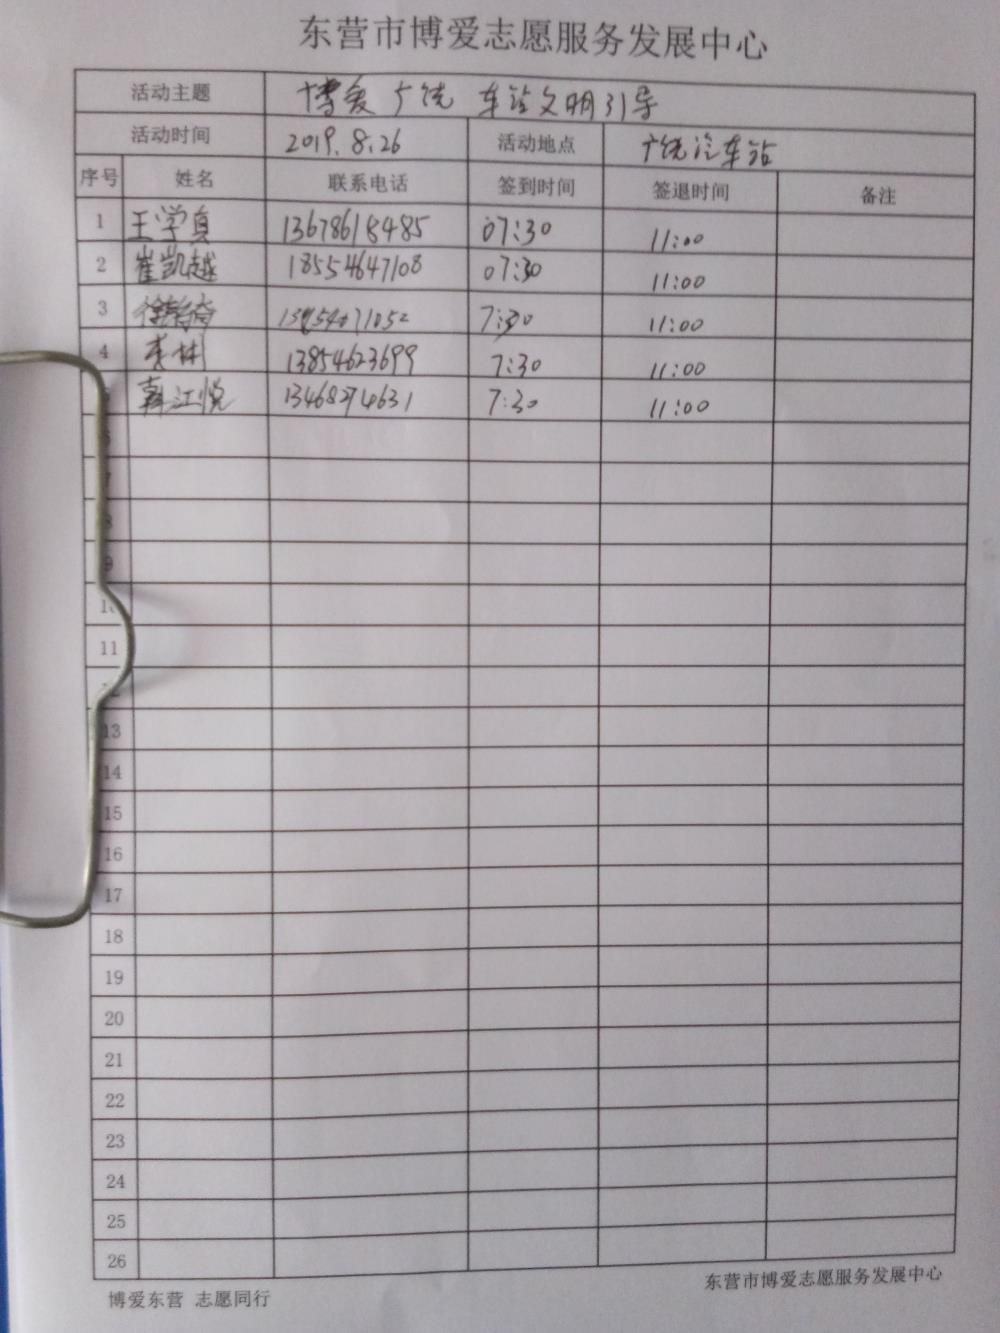 东营市博爱志愿服务发展中心
活动主题 博爱广饶 车站文明引导
活动时间 2019.8.26 活动地点 广饶汽车站
序号 姓名 联系电话 签到时间 签退时间 备注
1 王学真 13678618485 07:30 11:00
2 崔凯越 18554647108 07:30 11:00
3 7:30 11:00
4 李彬 13854623699 7:30 11:00
韩江悦 13468274631 7:30 11:00
8
9
11
13
14
15
16
17
18
19
20
21
22
23
24
25
26
博爱东营 志愿同行 东营市博爱志愿服务发展中心